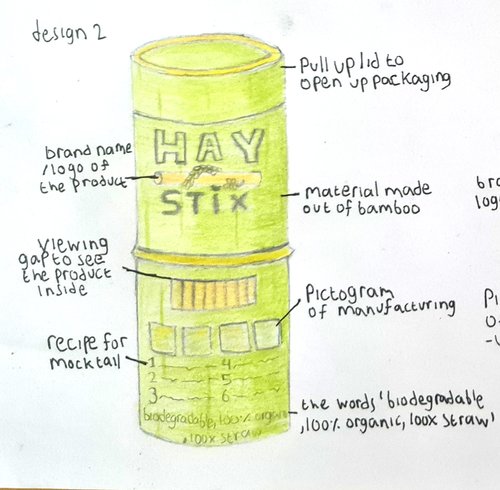 design 2
Pull up lid to
open up packaging
HAY
STix
brand name
/logo of
the product
material made
out of bamboo
viewing
gap to see
the product
inside
Pictogram
of manufacturing
recipe for
mocktail
1 4
2 5
3 6
biodegradable, 100% organic
, 100x straw
the words 'biodegradable
, 100% organic, 100x straw'